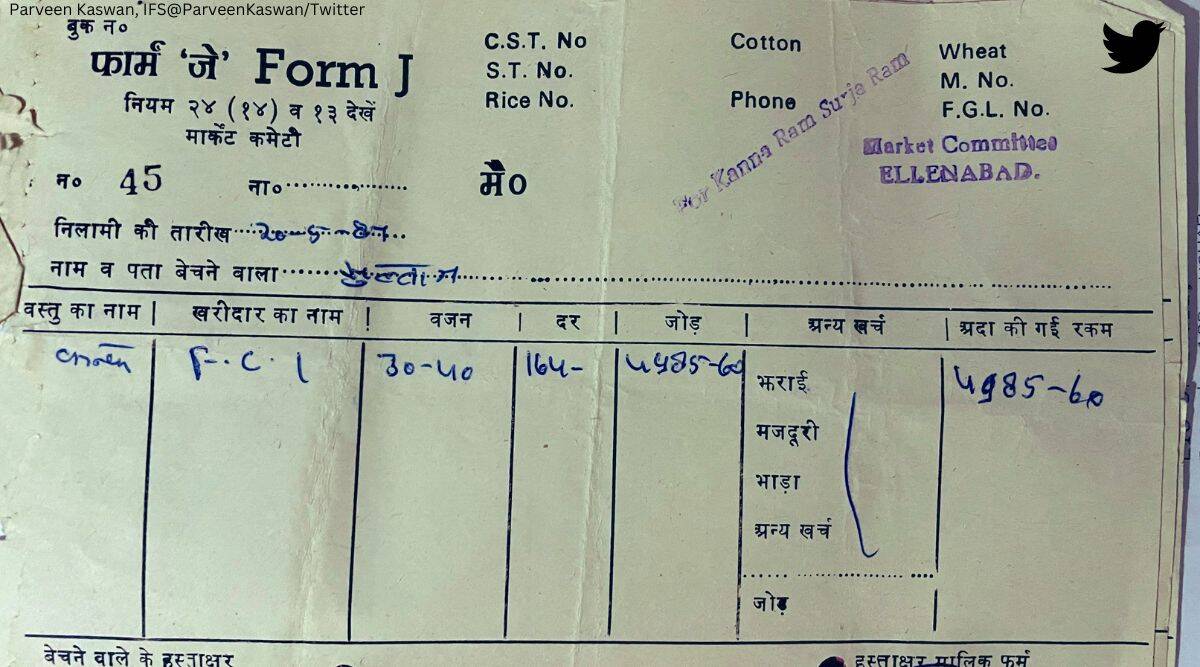 Parveen Kaswan, IFS@ParveenKaswan/Twitter
बुक न०
फार्म 'जे' Form J
नियम २४ (१४) व १३ देखें
मार्केट कमेटी
C.S.T. No
S.T. No.
Rice No.
Cotton
Phone
Wheat
M. No.
F.G.L. No.
For Kanna Ram Surja Ram
Market Committee
ELLENABAD.
न० 45 ना०.................. मै०
निलामी की तारीख २०-५-८७
नाम व पता बेचने वाला
वस्तु का नाम | खरीदार का नाम | वजन | दर | जोड़ | अन्य खर्च | अदा की गई रकम
F.C.I 30-40 164-
झराई
मजदूरी
भाड़ा
अन्य खर्च
जोड़
बेचने वाले के हस्ताक्षर हस्ताक्षर मालिक फर्म